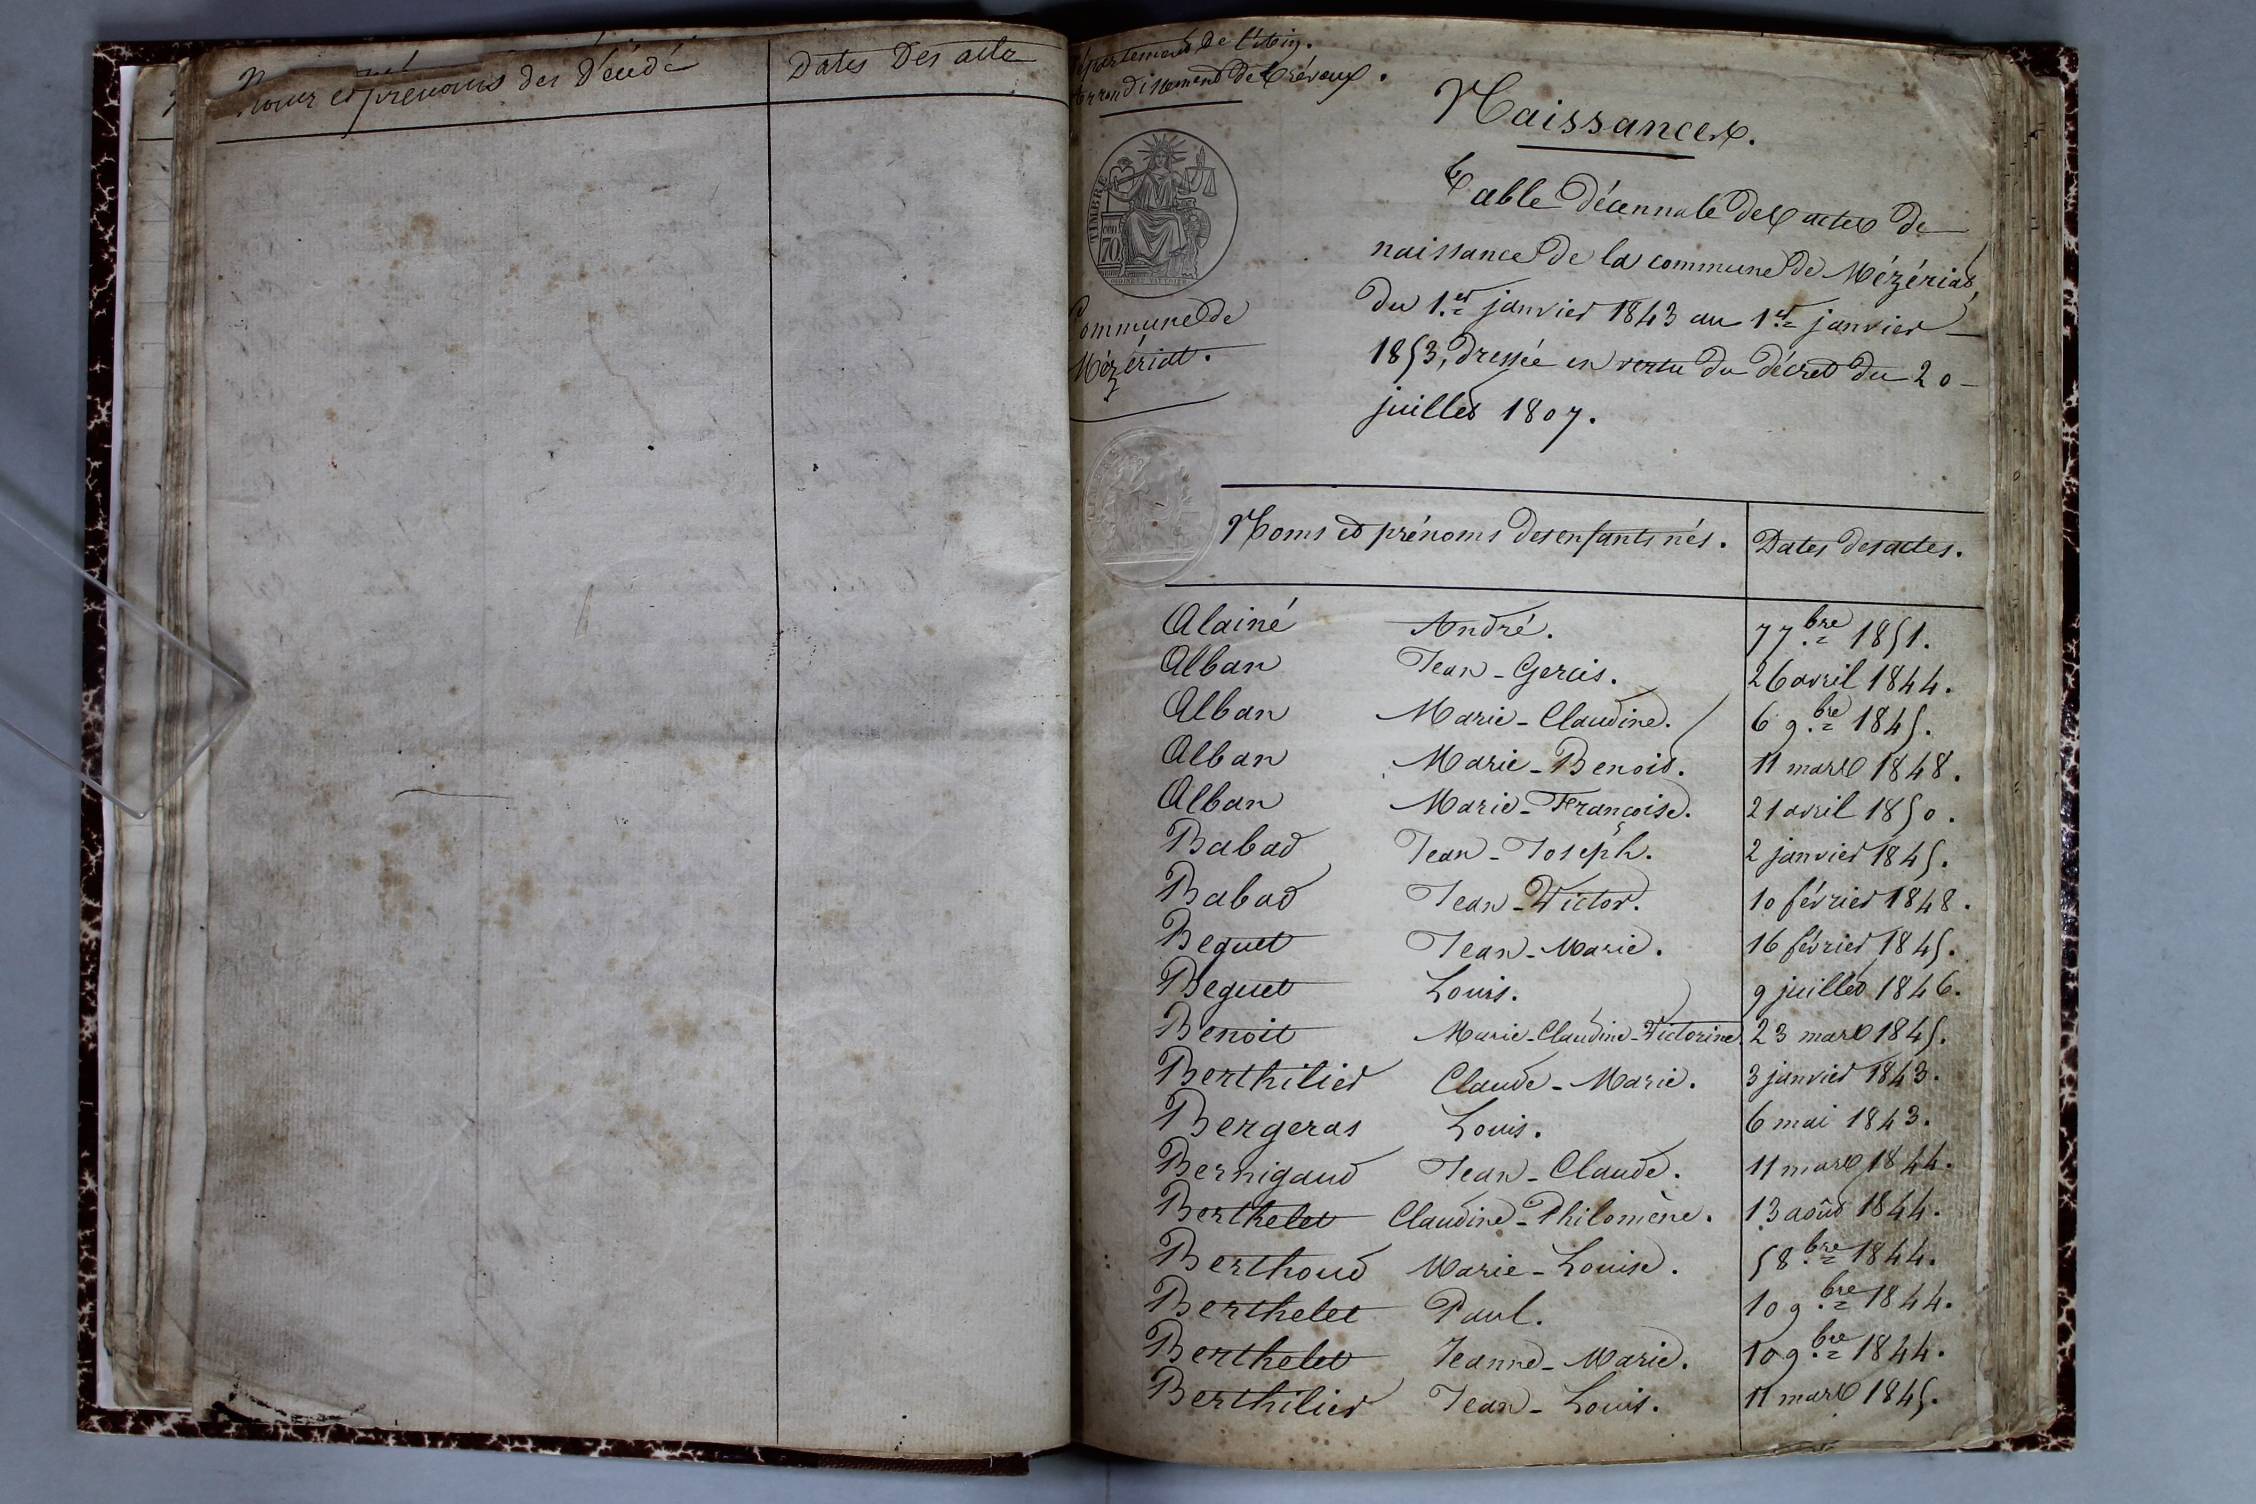 Noms et prénoms des Décédé
Dates Des acte
Département de l'Ain.
Arrondissement de Trévoux.
TIMBRE
70
Commune de
Mézériat.
Naissances.
Table décennale des actes de
naissance de la commune de Mézériat,
du 1.er janvier 1843 au 1er janvier
1853, dressée en vertu du décret du 20
juillet 1807.
Noms et prénoms des enfants nés. Dates des actes.
Alainé André. 7 7.bre 1851.
Alban Jean-Gervais. 26 avril 1844.
Alban Marie-Claudine. 6 9.bre 1845.
Alban Marie-Benoit. 11 mars 1848.
Alban Marie-Françoise. 21 avril 1850.
Babad Jean-Joseph. 2 janvier 1845.
Babad Jean-Victor. 10 février 1848.
Beguet Jean-Marie. 16 février 1845.
Beguet Louis. 9 juillet 1846.
Benoit Marie-Claudine-Victorine. 23 mars 1845.
Berthilier Claude-Marie. 3 janvier 1843.
Bergeras Louis. 6 mai 1843.
Bernigaud Jean-Claude. 11 mars 1844.
Berthelet Claudine-Philomène. 13 août 1844.
Berthoud Marie-Louise. 5 8.bre 1844.
Berthelet Paul. 10 9.bre 1844.
Berthelet Jeanne-Marie. 10 9.bre 1844.
Berthilier Jean-Louis. 11 mars 1845.